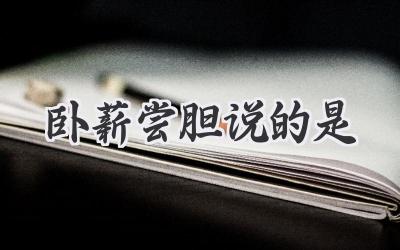 卧薪尝胆说的是